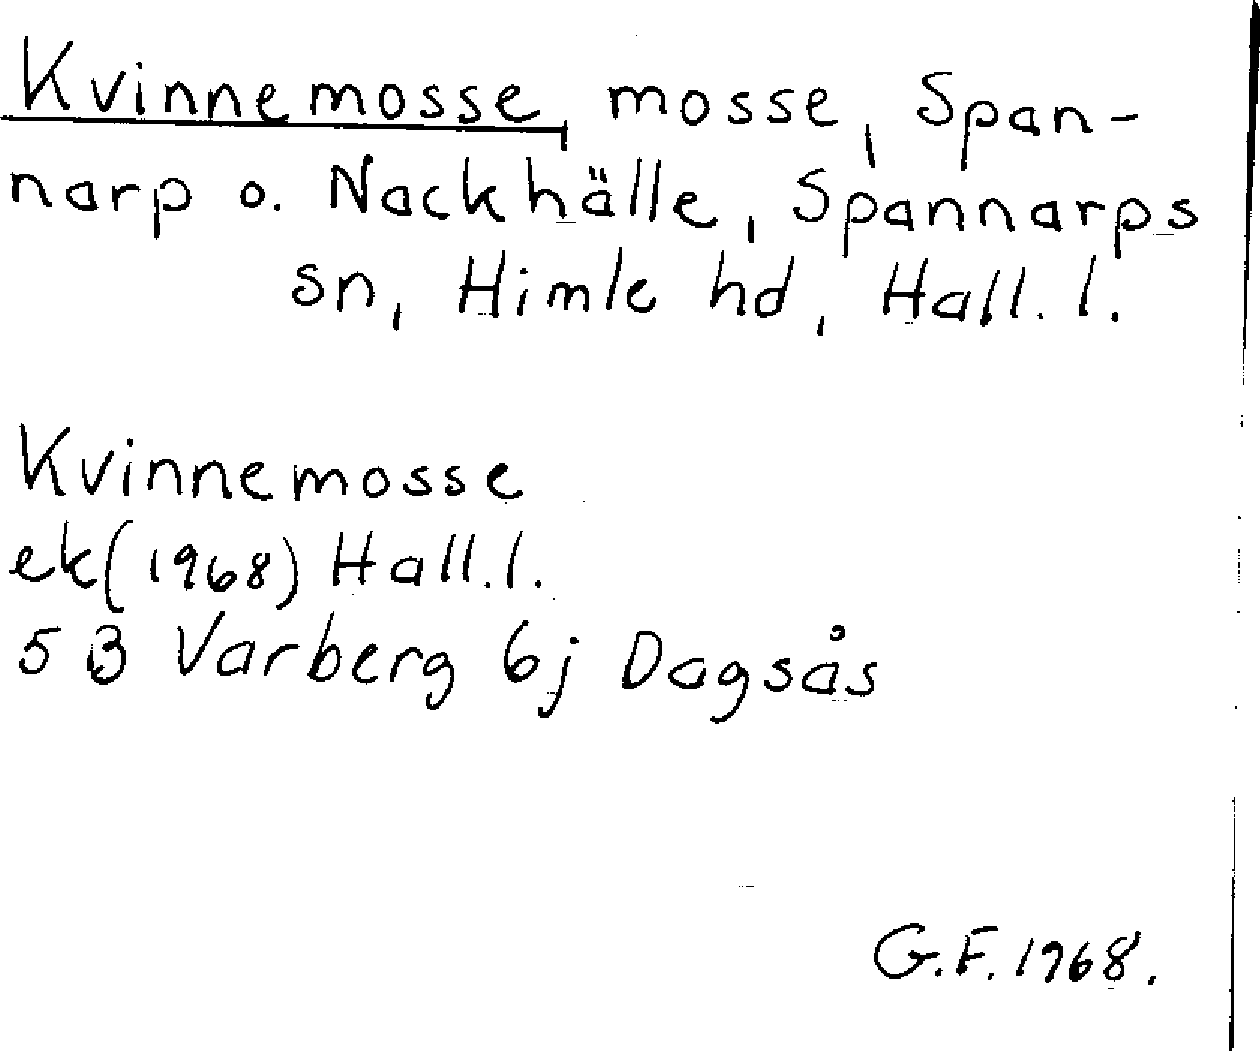 Kvinnemosse, mosse, Span-
narp o. Nackhälle, Spannarps
sn, Himle hd, Hall. l.
Kvinnemosse
ek (1968) Hall. l.
5 B Varberg 6j Dagsås
G.F. 1968.